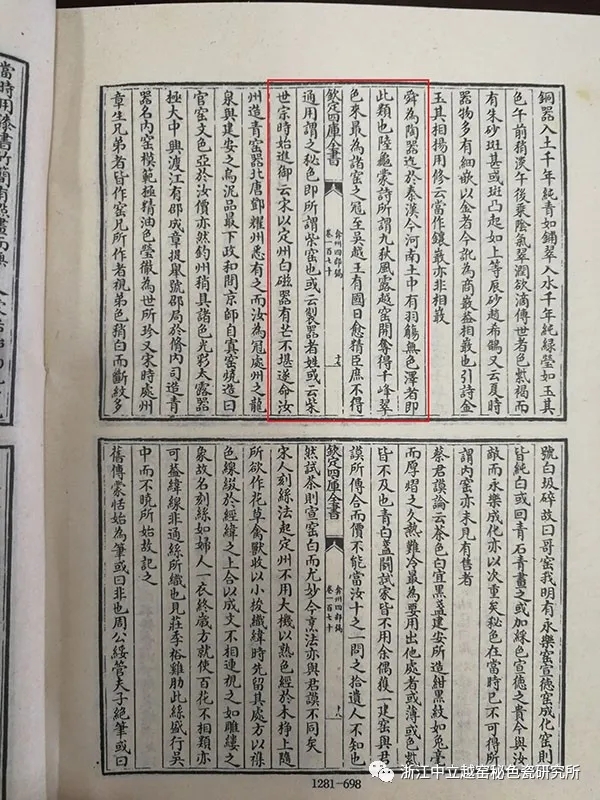 銅器入土千年純青如鋪翠入水千年純綠瑩如玉其
色午前稍淡午後乗陰氣翠潤欲滴傳世者色紫褐而
有朱砂斑甚或斑凸起如上等辰砂趙希鵠又云夏時
器物多有細嵌以金者今訛為商嵌葢相嵌也引詩金
玉其相楊用修云當作鑲嵌亦非相嵌
舜為陶器迄於秦漢今河南土中有羽觴無色澤者即
此類也陸龜蒙詩所謂九秋風露越窑開奪得千峰翠
色來最為諸窑之冠至吳越王有國日愈精臣庶不得
欽定四庫全書
弇州四部稿
卷一百七十
十七
通用謂之秘色即所謂柴窑也或云製器者姓或云柴
世宗時始進御云宋以定州白磁器有芒不堪遂命汝
州造青窑器北唐鄧耀州悉有之而汝為冠處州之龍
泉與建安之烏泥品最下政和間京師自寘窑燒造曰
官窑文色亞於汝價亦然鈞州稍具諸色光彩太露器
極大中興渡江有邵成章提舉號邵局於修内司造青
器名内窑模範極精油色瑩徹為世所珍又宋時處州
章生兄弟者皆作窑兄所作者視弟色稍白而斷紋多
號白圾碎故曰哥窑我明有永樂窑宣徳窑成化窑則
皆純白或回青石青畫之或加綵色宣徳之貴今與汝
敵而永樂成化亦以次重矣秘色在當時已不可得所
謂内窑亦未見有售者
蔡君謨論云茶色白宜黑盞建安所造紺黑紋如兎毫
而厚熁之久熱難冷最為要用出他處者或薄或色紫
皆不及也青白盞闘試家皆不用余偶獲一建窑與君
謨所傳合而價不能當汝十之一問之拾遺人不知也
欽定四庫全書
弇州四部稿
卷一百七十
十八
然試茶則宣窑白而尤妙今烹法亦與君謨不同矣
宋人刻絲法起定州不用大機以熟色經於木挣上隨
所欲作花草禽獸收以小梭織緯時先留其處方以雜
色線綴於經緯之上合以成文不相連視之如雕鏤之
象故名刻絲如婦人一衣終歳方就使百花不相類亦
可葢緯線非通絲所織也見莊季裕雞肋此絲盛行吳
中而不曉所始故記之
舊傳蒙恬始為筆或曰非也周公綬管夫子絶筆或曰
當時用漆書竹簡有點畫而無
1281-698
浙江中立越窑秘色瓷研究所